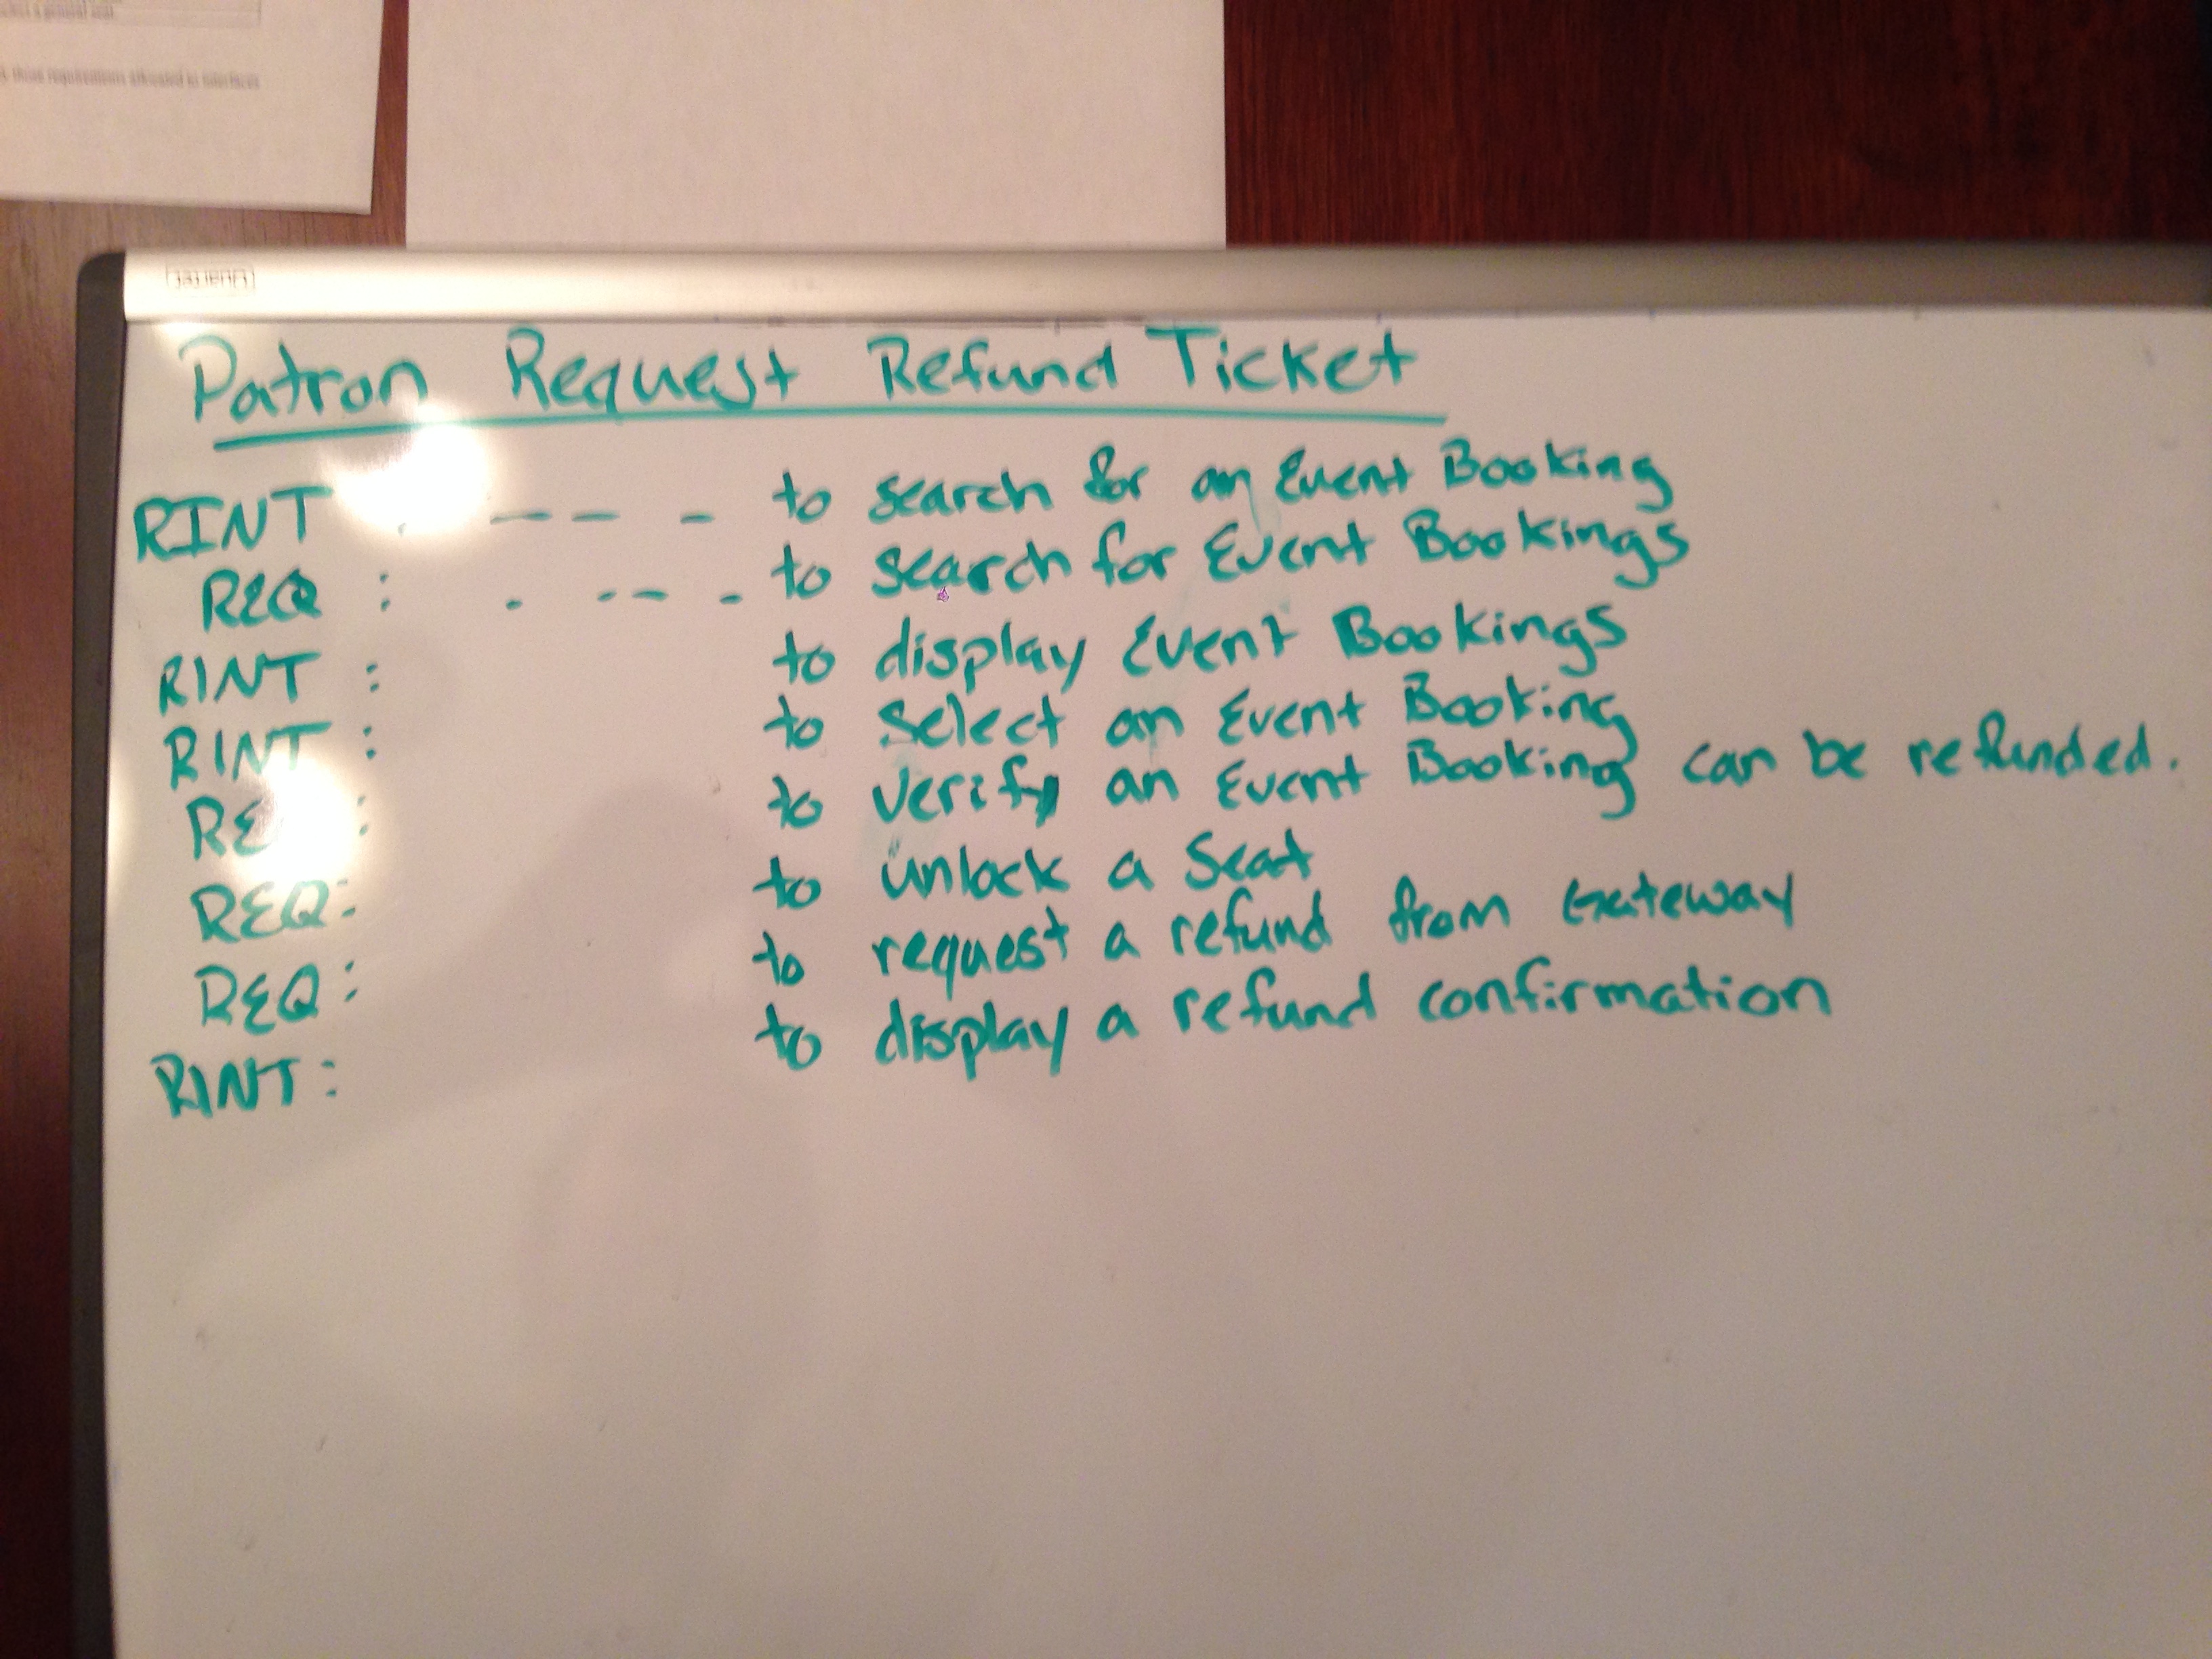 those requirements allocated to interfaces
Quartet
Patron Request Refund Ticket
RINT : - - - - to search for an Event Booking
REQ : - - - - to search for Event Bookings
RINT : to display Event Bookings
RINT : to select an Event Booking
RE : to verify an Event Booking can be refunded.
REQ: to unlock a Seat
REQ: to request a refund from Gateway
RINT: to display a refund confirmation